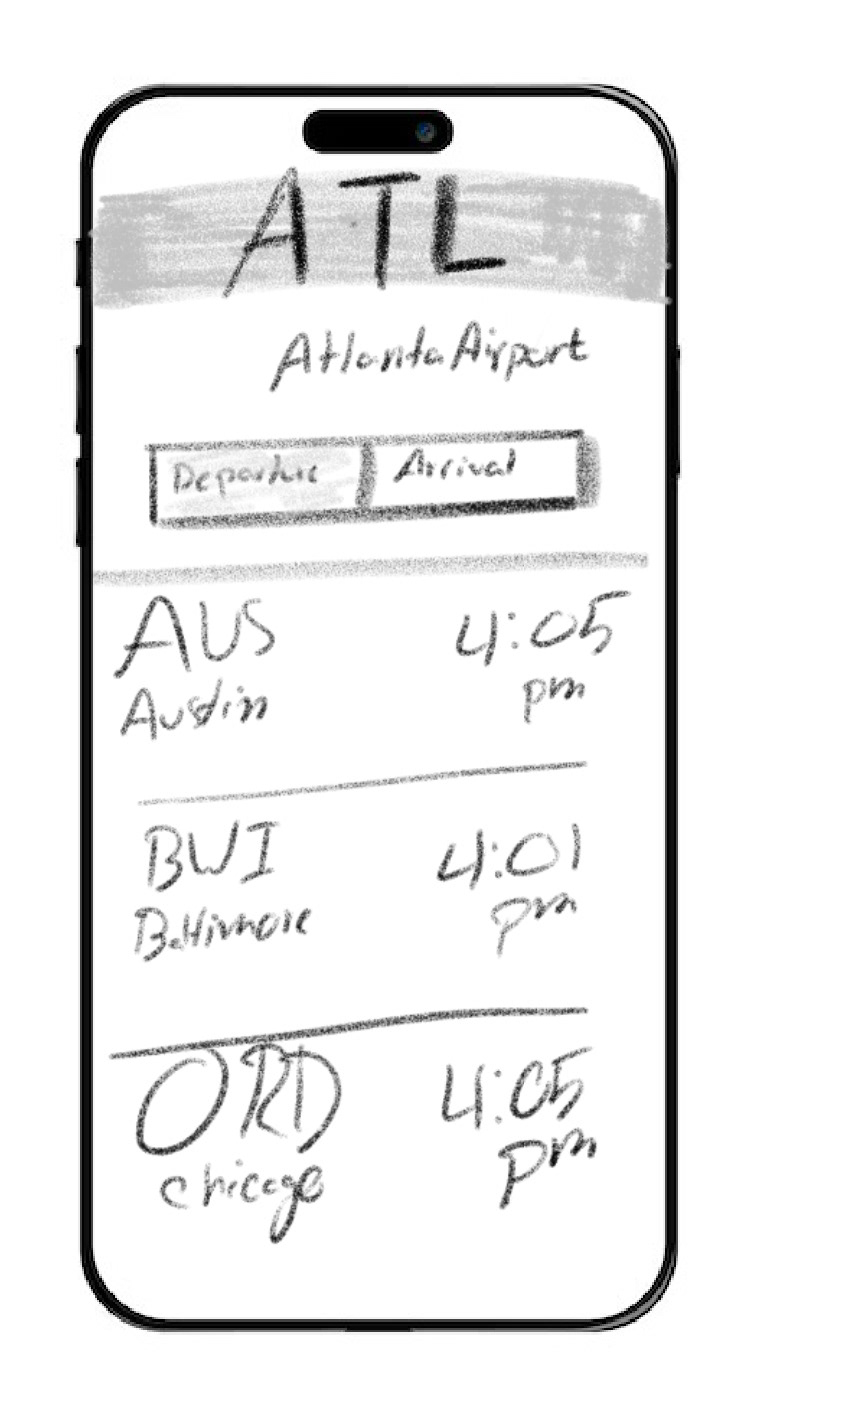 ATL
Atlanta Airport
Departure Arrival
AUS 4:05
Austin pm
BWI 4:01
Baltimore pm
ORD 4:05
chicago pm